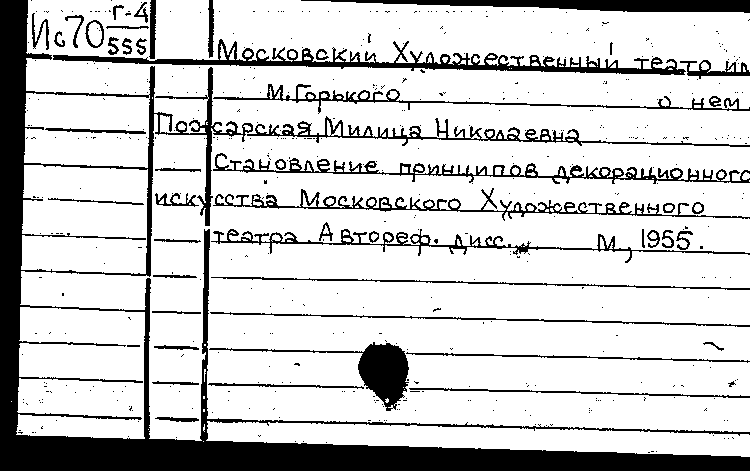 Ис70 Г-4
555
Московский Художественный театр им
М.Горького, о нем
Пожарская, Милица Николаевна
Становление принципов декорационного
искусства Московского Художественного
театра. Автореф. дисс. М., 1955.